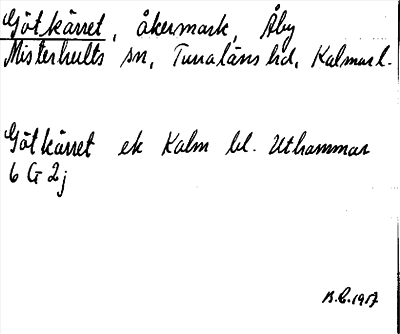 Götkärret, åkermark, Åby
Misterhults sn, Tunaläns hd, Kalmar l.
Götkärret ek Kalm bl. Uthammar
6 G 2j
1957